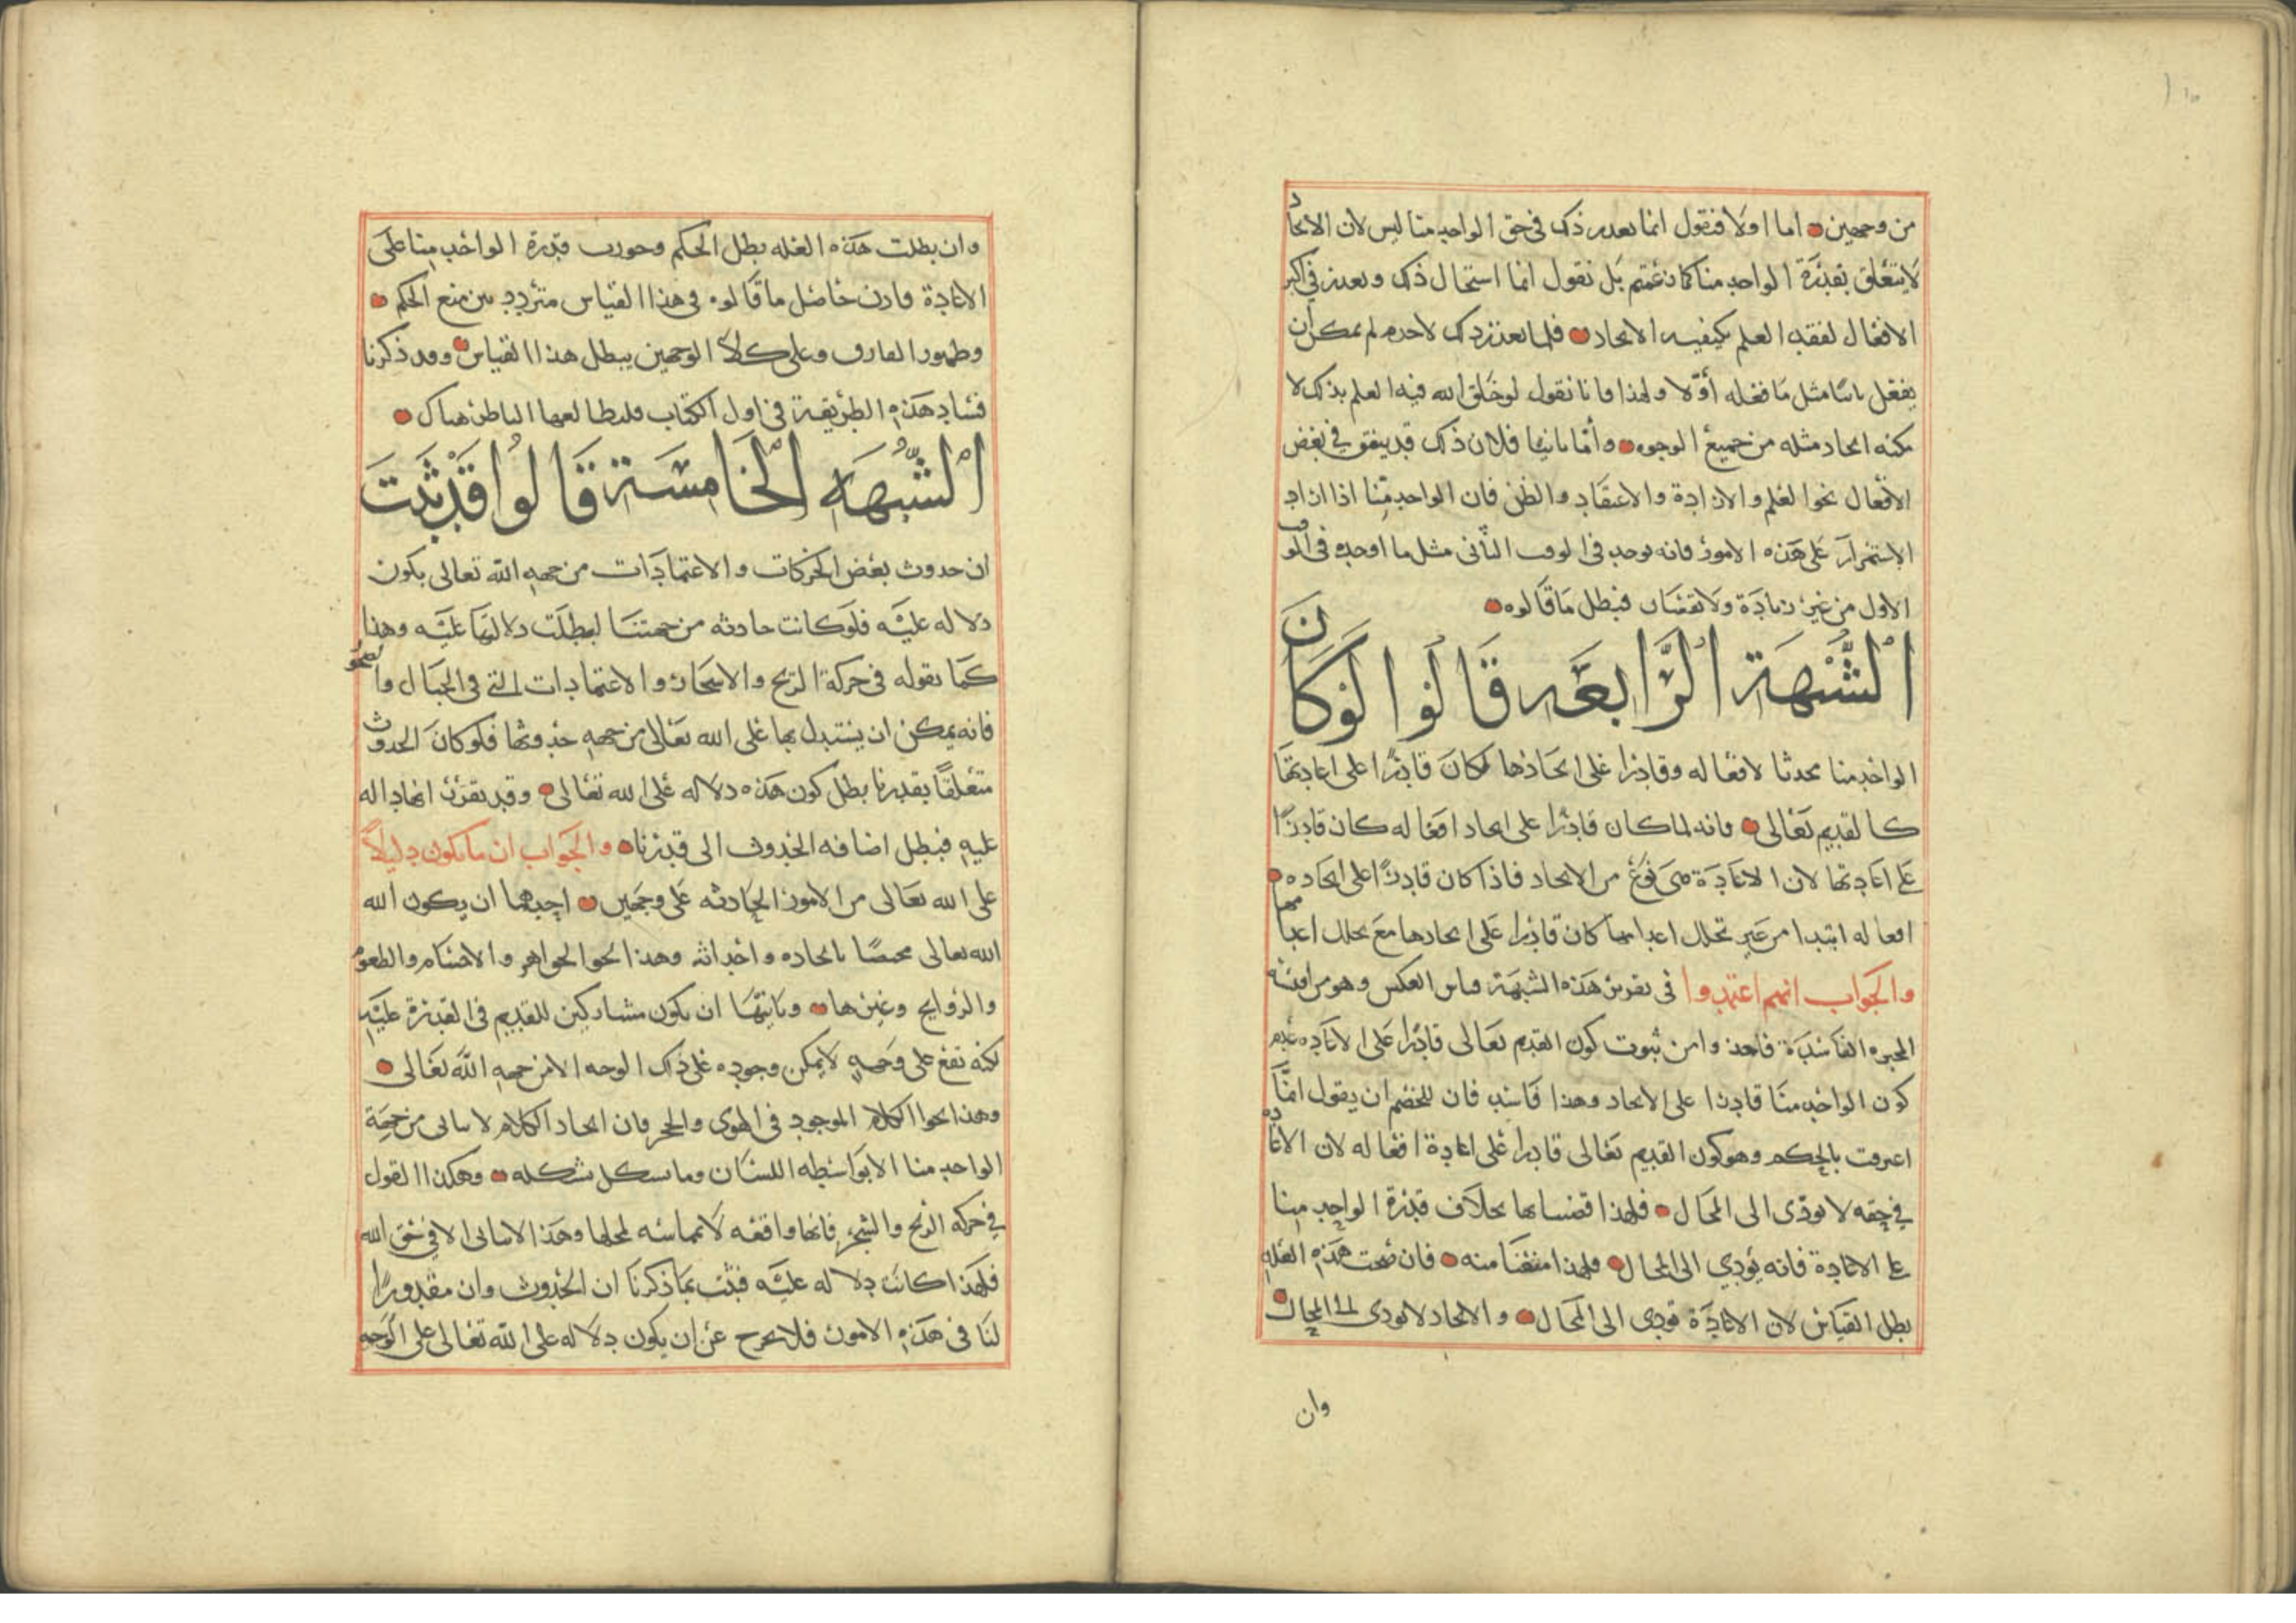 من وجهين اما اولا فنقول انما تعذر ذلك في حق الواحد منا ليس لان الايجاد
لا يتعلق بقدرة الواحد منا كما زعمتم بل نقول انما استحال ذلك وتعذر في اكثر
الافعال لفقد العلم بكيفيه الايجاد فلما تعذر ذلك لاجرم لم يمكن ان
يفعل ثانيا مثل ما فعله أولا ولهذا فانا نقول لو خلق الله فيه العلم بذلك لا
مكنه ايجاد مثله من جميع الوجوه وأما ثانيا فلان ذلك قد يتفق في بعض
الافعال نحو العلم والارادة والاعتقاد والظن فان الواحد منا اذا اراد
الاستمرار على هذه الامور فانه يوجد في الوقت الثاني مثل ما اوجده في الوقت
الاول من غير زيادة ولا نقصان فبطل ما قالوه
الشبهة الرابعه قالوا لو كان
الواحد منا محدثا لافعاله وقادرا على ايجادها لكان قادرا على اعادتها
كالقديم تعالى فانه لما كان قادرا على ايجاد افعاله كان قادرا
على اعادتها لان الاعادة هي نوع من الايجاد فاذا كان قادرا على ايجاده
افعاله ابتدا من غير تخلل اعدامها كان قادرا على ايجادها مع تخلل اعدامها
والجواب انهم اعتمدوا في تقرير هذه الشبهة قياس العكس وهو من اقيسة
المجبره الفاسدة فاخذوا من ثبوت كون القديم تعالى قادرا على الاعاده عدم
كون الواحد منا قادرا على الايجاد وهذا فاسد فان للخصم ان يقول انما
اعترفت بالحكم وهو كون القديم تعالى قادرا على اعادة افعاله لان الاعاده
في حقه لا تودى الى المحال فلهذا قضينا بها بخلاف قدرة الواحد منا
على الاعادة فانه يؤدي الى المحال فلهذا امتنعنا منه فان صحت هذه العله
بطل القياس لان الاعادة تودى الى المحال والايجاد لا يودى الى المحال
وان
وان بطلت هذه العله بطل الحكم وجوزت قدرة الواحد منا على
الاعادة فاذن حاصل ما قالوه في هذا القياس متردد بين منع الحكم
وظهور الفارق وعلى كلا الوجهين يبطل هذا القياس وقد ذكرنا
فساد هذه الطريقة في اول الكتاب فليطالعها الناظر هناك
الشبهه الخامسة قالوا قد ثبت
ان حدوث بعض الحركات والاعتمادات من جهه الله تعالى يكون
دلاله عليه فلو كانت حادثه من جهتنا لبطلت دلالتها عليه وهذا
كما نقوله في حركة الريح والاشجار والاعتمادات التي في الجبال والصخور
فانه يمكن ان يستدل بها على الله تعالى من جهه حدوثها فلو كان الحدوث
متعلقا بقدرنا بطل كون هذه دلاله على الله تعالى وقد تقرر اتحاد اله
عليه فبطل اضافه الحدوث الى قدرنا والجواب ان ما يكون دليلا
على الله تعالى من الامور الحادثه على وجهين احدهما ان يكون الله
الله تعالى مختصا بايجاده واحداثه وهذا نحو الجواهر والاجسام والطعوم
والروايح وغيرها وثانيها ان يكون مشاركين للقديم في القدرة عليه
لكنه تقع على وجه لا يمكن وجوده على ذلك الوجه الا من جهه الله تعالى
وهذا نحو الكلام الموجود في الهوى والحجر فان ايجاد الكلام لا يتاتى من جهة
الواحد منا الا بواسطه اللسان وما يشكل شكله وهكذا القول
في حركه الريح والشجر فانها واقعه لا بمماسه لمحلها وهذا لا يتاتى الا في حق الله
فلهذا كانت دلاله عليه فثبت بما ذكرنا ان الحدوث وان مقدورا
لنا في هذه الامور فلا يخرج عن ان يكون دلاله على الله تعالى على الوجه